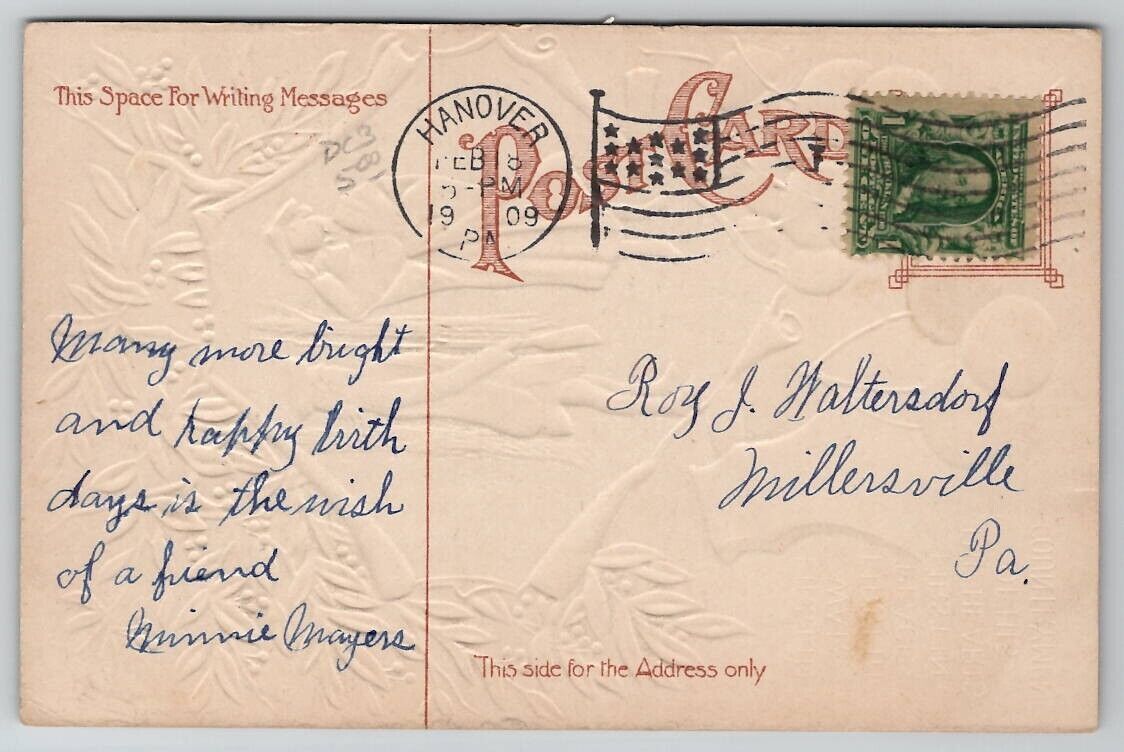 This Space For Writing Messages
POST CARD
HANOVER
FEB 18
-PM
1909
PA
1 1
Many more bright
and happy birth
days is the wish
of a friend
Minnie Mayers
Roy J. Waltersdorf
Millersville
Pa.
This side for the Address only